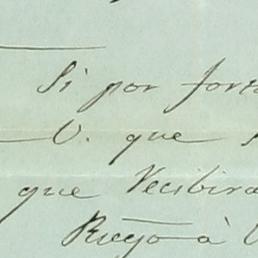 Si por fort
U. que
que Recibira
Ruego à